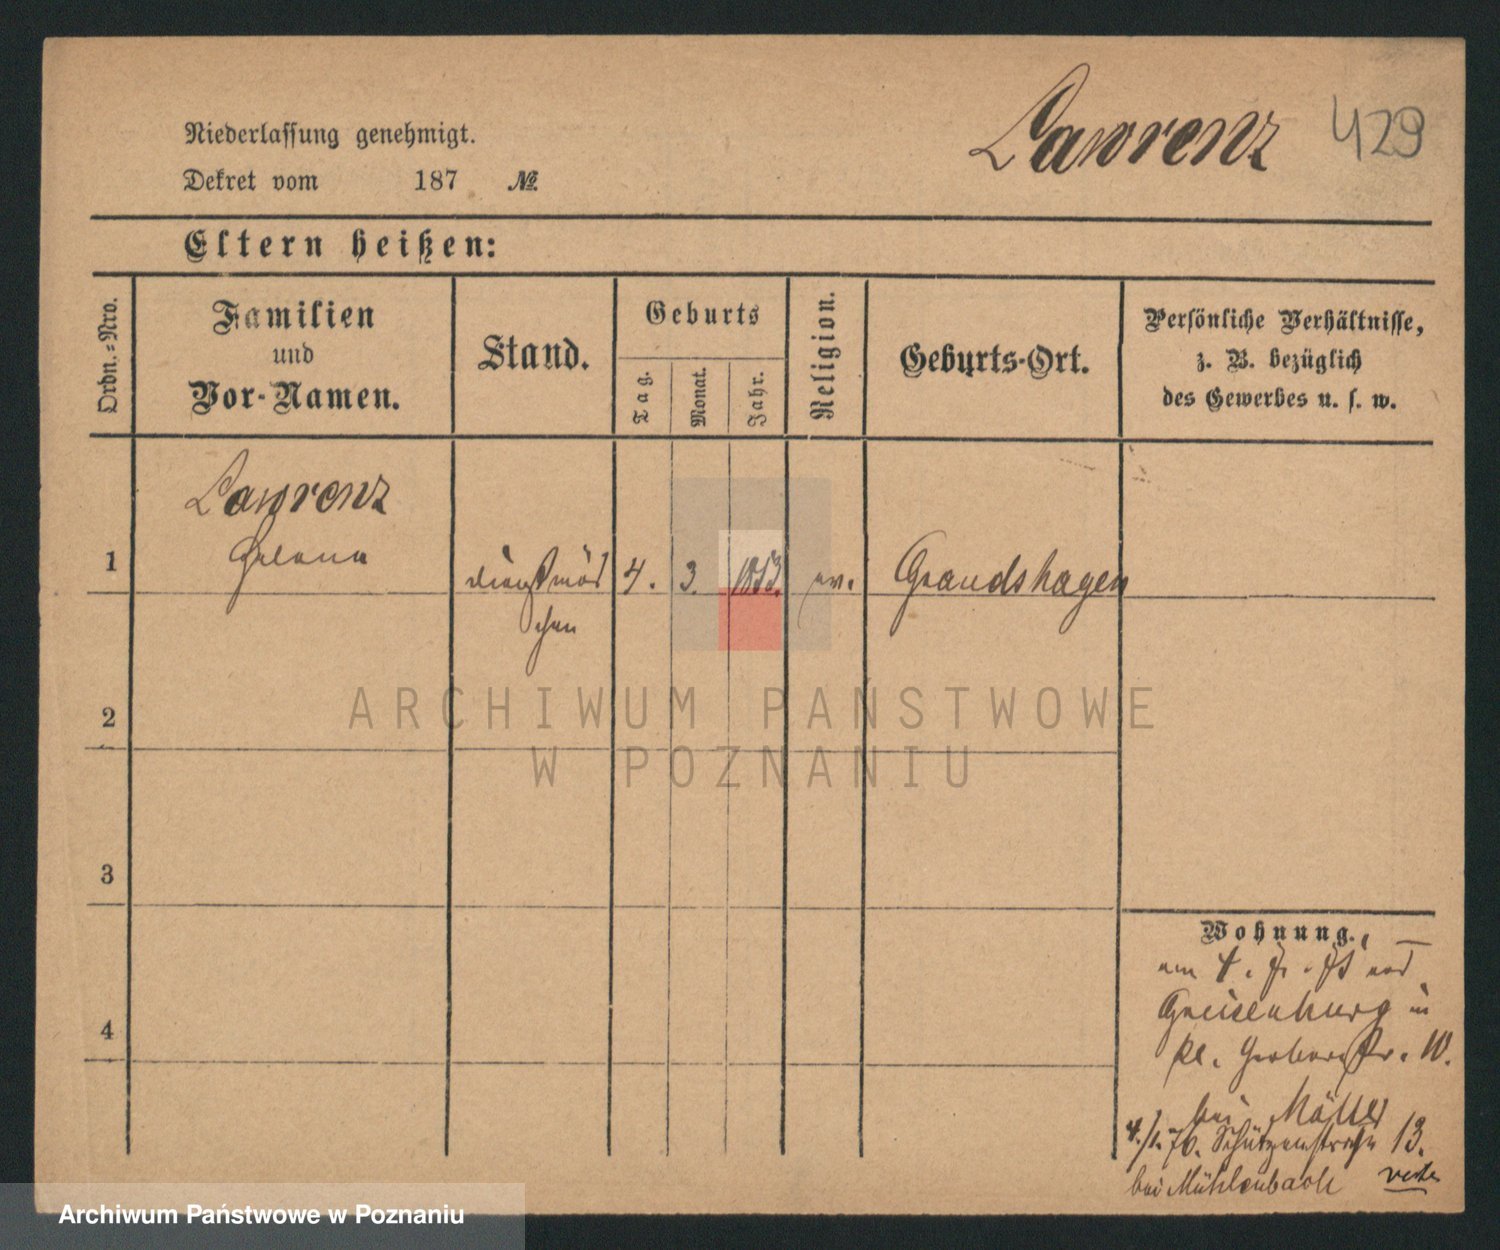 Lawrenz 429
Niederlassung genehmigt.
Dekret vom 187 №
Eltern heißen:
Ordn.=Nro.
Familien
und
Vor-Namen.
Stand.
Geburts
Tag.
Monat.
Jahr.
Religion.
Geburts-Ort.
Persönliche Verhältnisse,
z. B. bezüglich
des Gewerbes u. s. w.
Lawrenz
1 Helena Dienstmäd 4. 3. 1853. ev. Grandshagen
chen
2
3
4
Wohnung.
am 4.
in
kl. Gerberstr. 10.
bei Müller
76. Schützenstraße 13.
bei Mühlenbach verte
ARCHIWUM PAŃSTWOWE
W POZNANIU
Archiwum Państwowe w Poznaniu